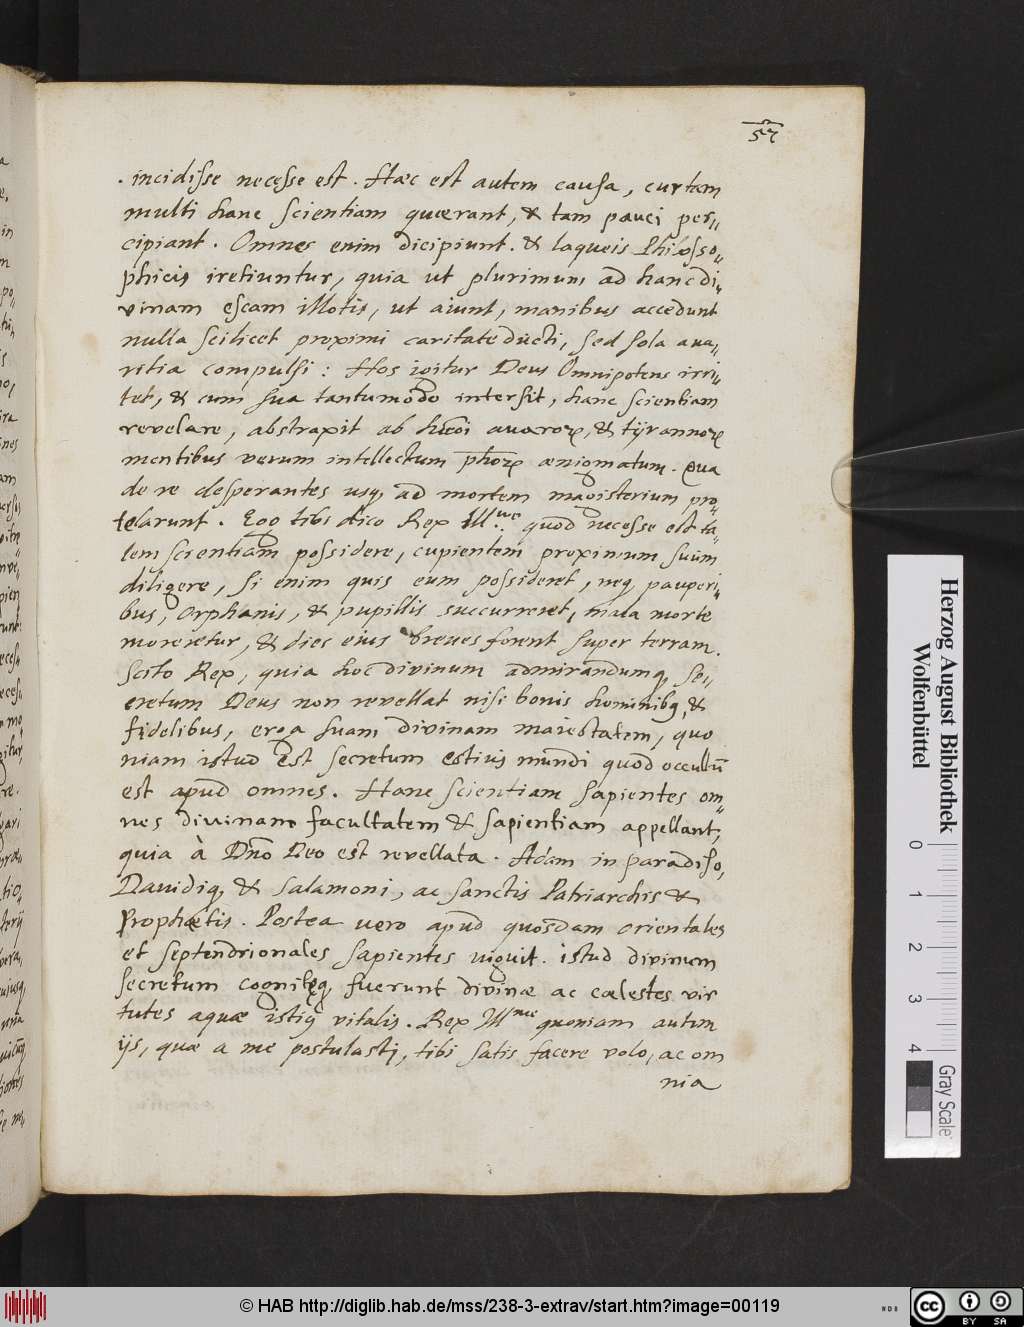 57
. incidisse necesse est. Haec est autem causa, cur tam
multi hanc scientiam quaerant, & tam pauci per„
cipiant. Omnes enim dicipiunt. & laqueis Philoso„
phicis iretiuntur, quia ut plurimum ad hanc di„
vinam escam illotis, ut aiunt, manibus accedunt
nulla scilicet proximi caritate ducti, sed sola aua„
ritia compulsi : Hos igitur Deus Omnipotens irri„
tet, & cum sua tantumodo intersit, hanc scientiam
revelare, abstraxit ab avaroꝝ, & tÿrannoꝝ
mentibus verum intellectum phoꝝ ænigmatum. Qua
de re desperantes usq; ad mortem magisterium pro„
telarunt. Ego tibi dico Rex Ill.me quod necesse est ta„
lem scientiam possidere, cupientem proximum suum
diligere, si enim quis eum possideret, neq; pauperi„
bus, orphanis, & pupillis succurreret, mala morte
moreretur, & dies eius breves forent super terram.
Scito Rex, quia hoc divinum admirandumq; se„
cretum Deus non revellat nisi bonis hominibq;, &
fidelibus, erga suam divinam maiestatem, quo
niam istud est secretum estius mundi quod occultū
est apud omnes. Hanc scientiam sapientes om„
nes divinam facultatem & sapientiam appellant,
quia à Dno Deo est revellata. Adam in paradiso,
Dauidiq; & Salamoni, ac sanctis Patriarchis &
Prophætis. Postea vero apud quosdam orientales
et septendrionales sapientes viguit. istud divinum
secretum cognitęq; fuerunt divinæ ac cælestes vir
tutes aquæ istiq vitalis. Rex Ill.me quoniam autem
ijs, quæ a me postulasti, tibi satis facere volo, ac om
nia
Herzog August Bibliothek
Wolfenbüttel
0 1 2 3 4
Gray Scale
© HAB http://diglib.hab.de/mss/238-3-extrav/start.htm?image=00119
cc BY SA